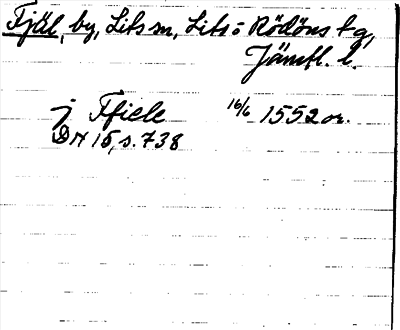 Fjäl, by, Lits sn, Lits o Rödöns tg,
Jämtl. l.
j Ffiele 16/6 1552 or.
DN 15, s. 738